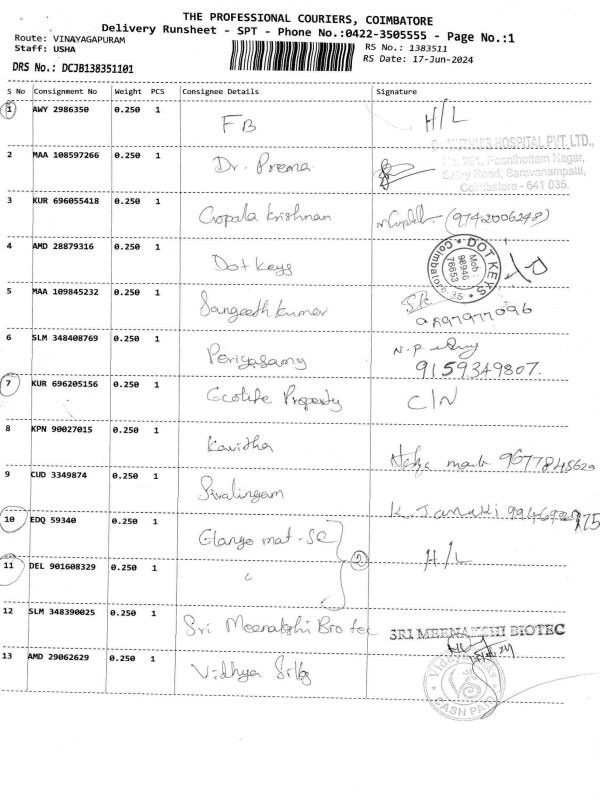 THE PROFESSIONAL COURIERS, COIMBATORE
Delivery Runsheet - SPT - Phone No.:0422-3505555 - Page No.:1
Route: VINAYAGAPURAM
Staff: USHA
RS No.: 1383511
RS Date: 17-Jun-2024
DRS No.: DCJB138351101
S No Consignment No Weight PCS Consignee Details Signature
1 AWY 2986350 0.250 1 FB H/L
HOSPITAL PVT. LTD.,
No. 261, Poonthottam Nagar,
Sathy Road, Saravanampatti,
Coimbatore - 641 035.
2 MAA 108597266 0.250 1 Dr. Prema
3 KUR 696055418 0.250 1 Gopala Krishnan (9742006248)
4 AMD 28879316 0.250 1 Dot Keys
DOT KEYS
Mob:
98946
76653
Coimbatore-35
5 MAA 109845232 0.250 1 Sangeeth kumar
6 SLM 348408769 0.250 1 Periyasamy
9159349807.
7 KUR 696205156 0.250 1 Ecolife Property C/N
8 KPN 90027015 0.250 1 Kavitha
9677845629
9 CUD 3349874 0.250 1 Sivalingam
K. Janaki
10 EDQ 59340 0.250 1 Elango mat-se H/L
2
11 DEL 901608329 0.250 1 "
12 SLM 348390025 0.250 1 Sri Meenakshi Bio tec
SRI MEENAKSHI BIOTEC
13 AMD 29062629 0.250 1 Vidhya Srlg
CASH PAID